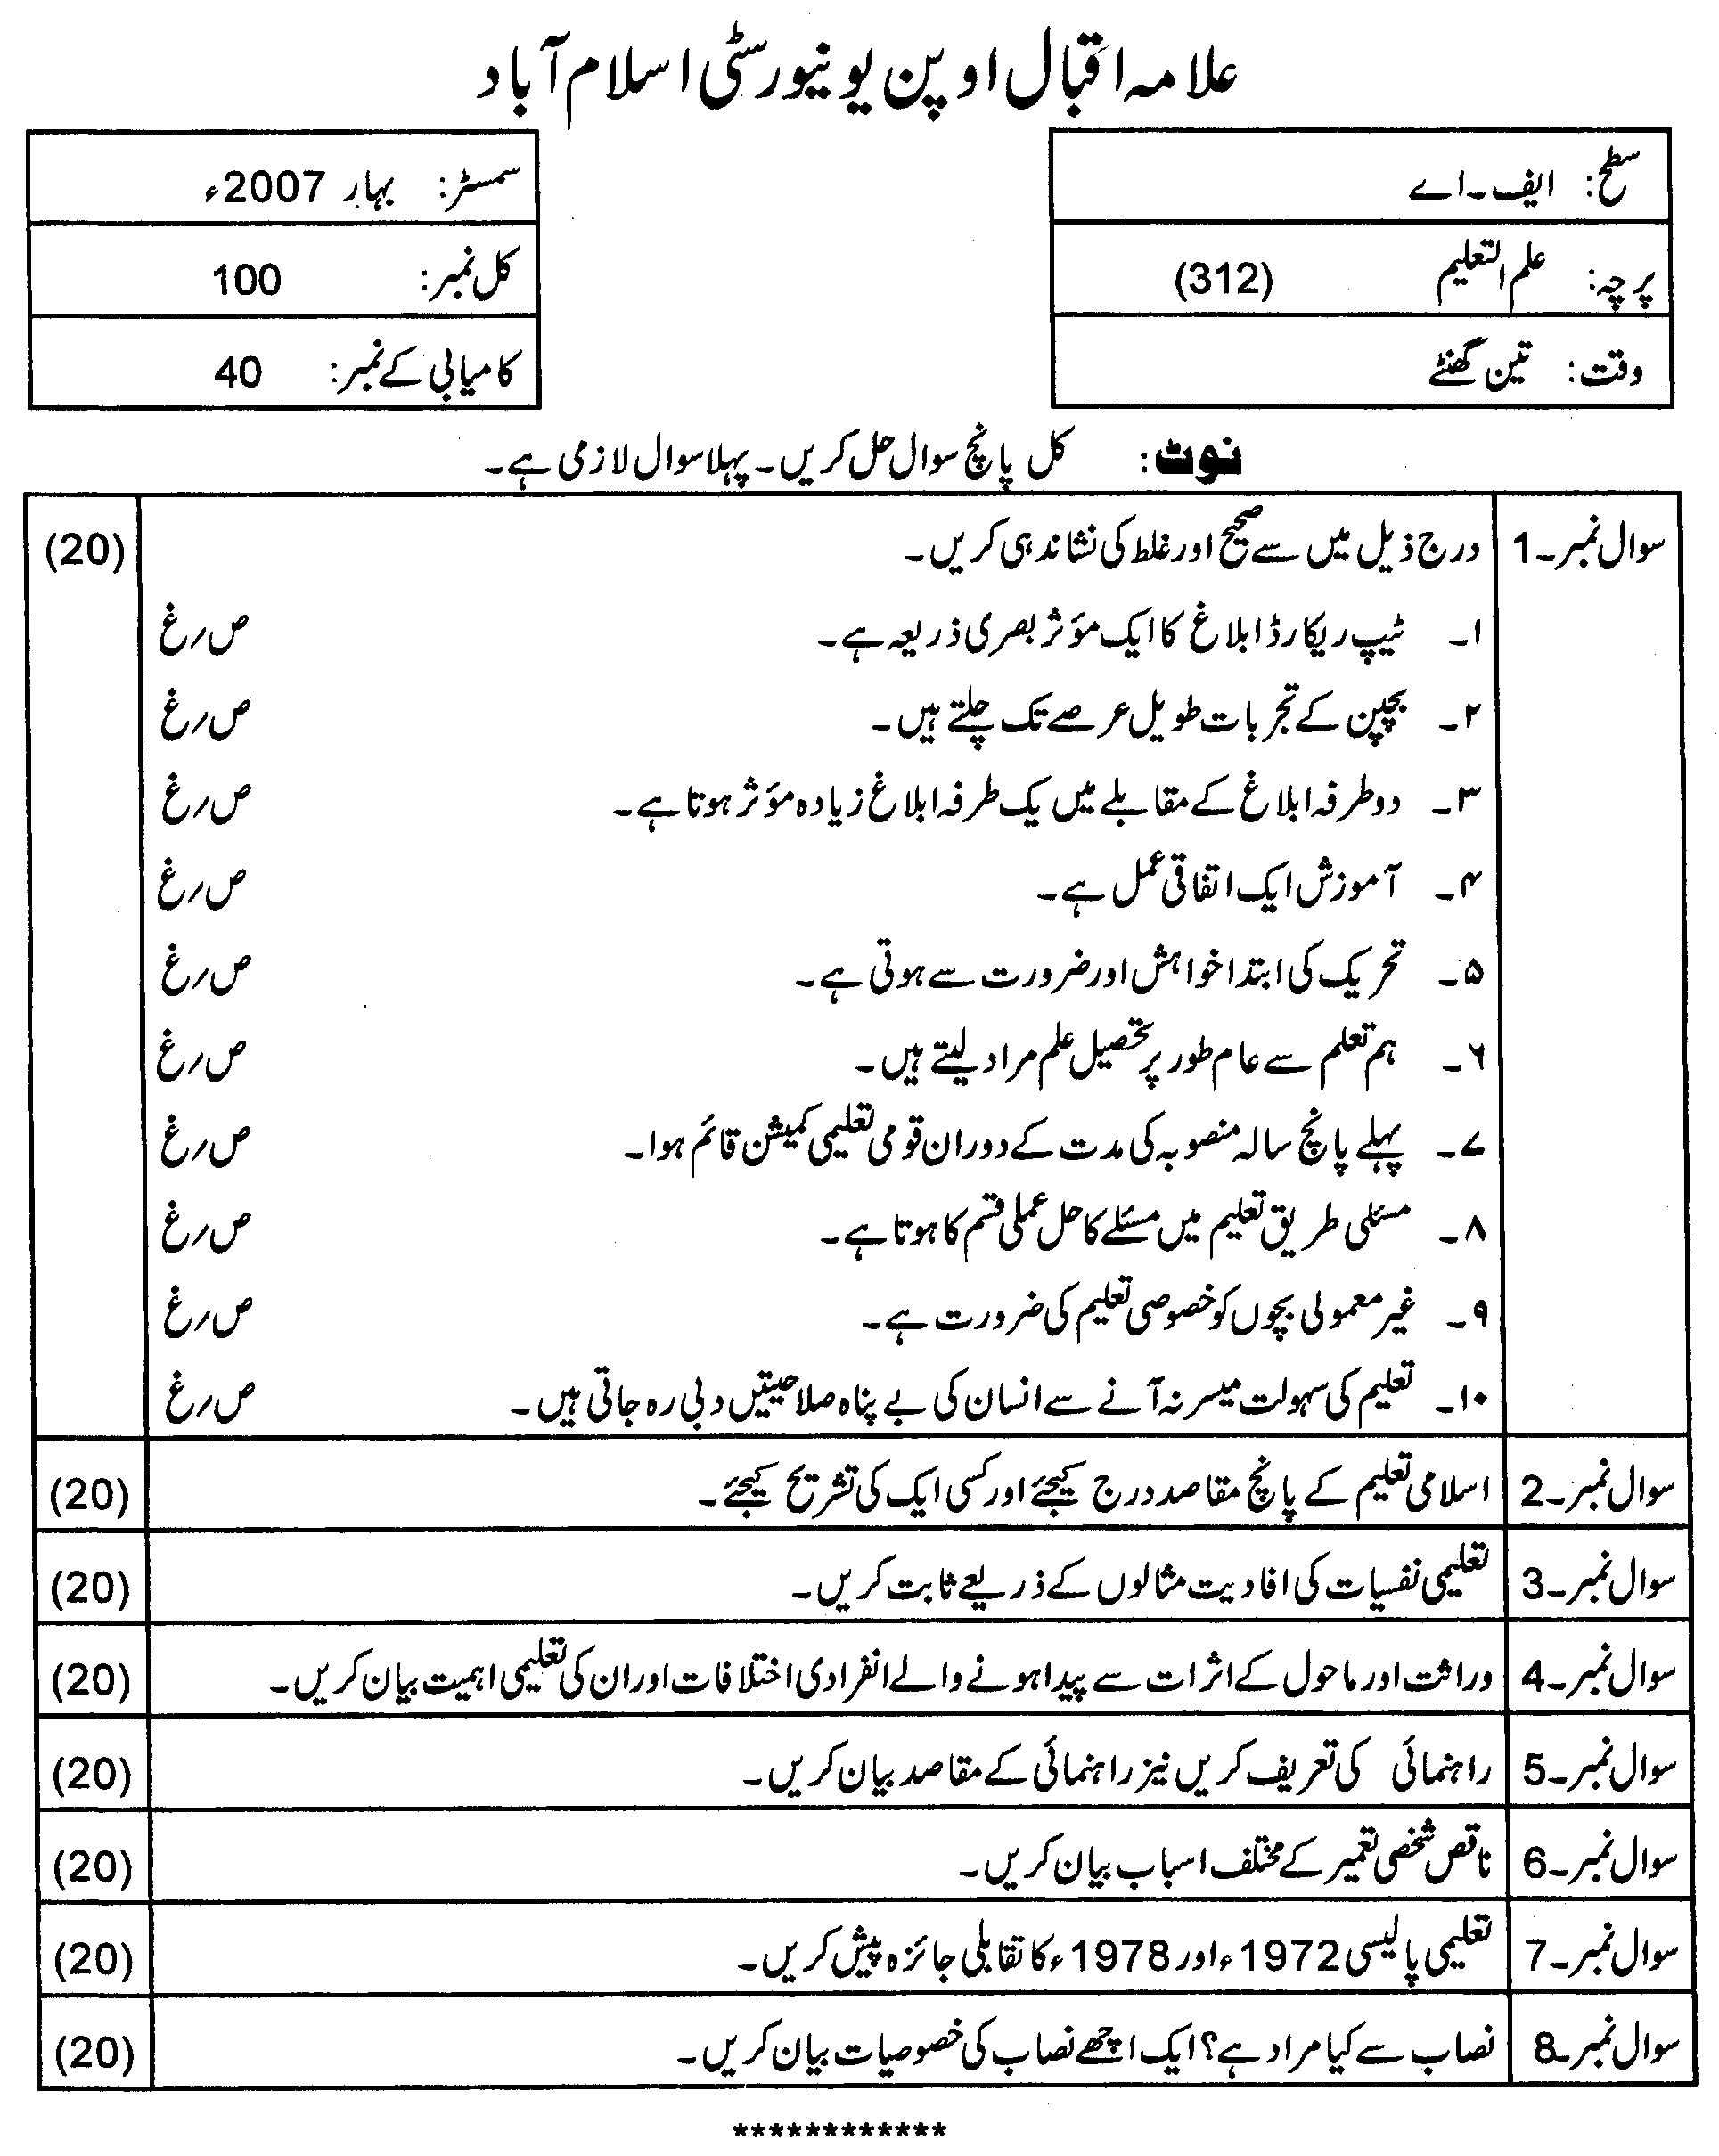 علامہ اقبال اوپن یونیورسٹی اسلام آباد
سطح: ایف۔اے
سمسٹر: بہار 2007ء
پرچہ: علم التعلیم (312)
کل نمبر: 100
وقت: تین گھنٹے
کامیابی کے نمبر: 40
نوٹ: کل پانچ سوال حل کریں۔ پہلا سوال لازمی ہے۔
سوال نمبر۔1 درج ذیل میں سے صحیح اور غلط کی نشاندہی کریں۔ (20)
۱۔ ٹیپ ریکارڈ ابلاغ کا ایک مؤثر بصری ذریعہ ہے۔ ص/غ
۲۔ بچپن کے تجربات طویل عرصے تک چلتے ہیں۔ ص/غ
۳۔ دو طرفہ ابلاغ کے مقابلے میں یک طرفہ ابلاغ زیادہ مؤثر ہوتا ہے۔ ص/غ
۴۔ آموزش ایک اتفاقی عمل ہے۔ ص/غ
۵۔ تحریک کی ابتدا خواہش اور ضرورت سے ہوتی ہے۔ ص/غ
۶۔ ہم تعلم سے عام طور پر تحصیل علم مراد لیتے ہیں۔ ص/غ
۷۔ پہلے پانچ سالہ منصوبہ کی مدت کے دوران قومی تعلیمی کمیشن قائم ہوا۔ ص/غ
۸۔ مسئلی طریق تعلیم میں مسئلے کا حل عملی قسم کا ہوتا ہے۔ ص/غ
۹۔ غیر معمولی بچوں کو خصوصی تعلیم کی ضرورت ہے۔ ص/غ
۱۰۔ تعلیم کی سہولت میسر نہ آنے سے انسان کی بے پناہ صلاحیتیں دبی رہ جاتی ہیں۔ ص/غ
سوال نمبر۔2 اسلامی تعلیم کے پانچ مقاصد درج کیجئے اور کسی ایک کی تشریح کیجئے۔ (20)
سوال نمبر۔3 تعلیمی نفسیات کی افادیت مثالوں کے ذریعے ثابت کریں۔ (20)
سوال نمبر۔4 وراثت اور ماحول کے اثرات سے پیدا ہونے والے انفرادی اختلافات اور ان کی تعلیمی اہمیت بیان کریں۔ (20)
سوال نمبر۔5 راہنمائی کی تعریف کریں نیز راہنمائی کے مقاصد بیان کریں۔ (20)
سوال نمبر۔6 ناقص شخصی تعمیر کے مختلف اسباب بیان کریں۔ (20)
سوال نمبر۔7 تعلیمی پالیسی 1972ء اور 1978ء کا تقابلی جائزہ پیش کریں۔ (20)
سوال نمبر۔8 نصاب سے کیا مراد ہے؟ ایک اچھے نصاب کی خصوصیات بیان کریں۔ (20)
************